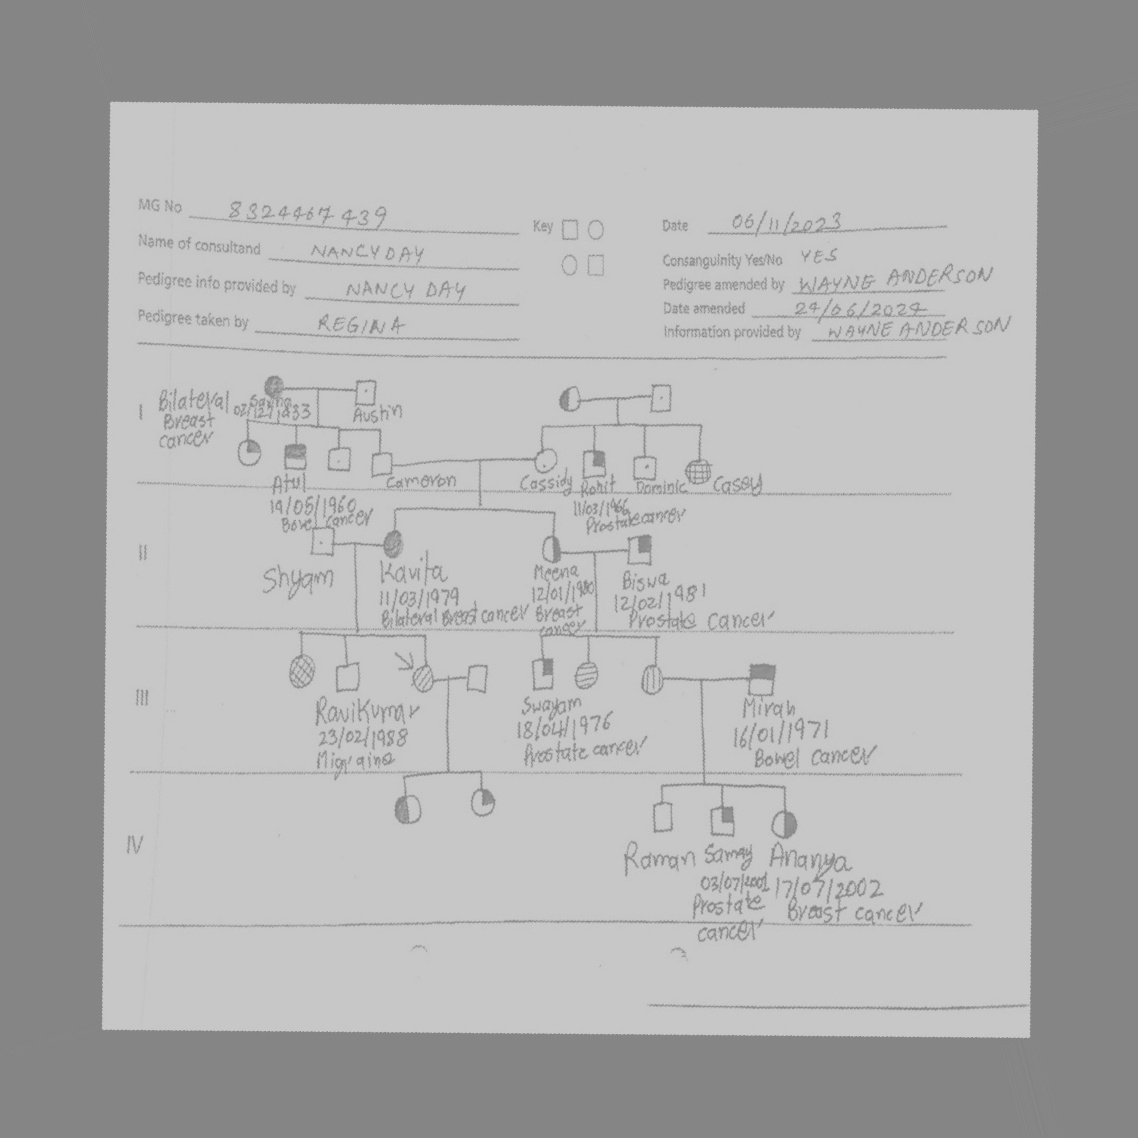 MG No 8324467439
Name of consultand NANCY DAY
Pedigree info provided by NANCY DAY
Pedigree taken by REGINA
Key
Date 06/11/2023
Consanguinity Yes/No YES
Pedigree amended by WAYNE ANDERSON
Date amended 24/06/2024
Information provided by WAYNE ANDERSON
I
Bilateral
Breast
cancer
Austin
Atul
19/05/1960
cancer
Cameron
Cassidy
Rohit
11/03/1966
Prostate cancer
Dominic
Casey
II
Shyam
Kavita
11/03/1979
Bilateral Breast cancer
Meena
12/01/1980
Breast
cancer
Biswa
12/02/1981
Prostate cancer
III
RaviKumar
23/02/1988
Migraine
Swayam
18/04/1976
Prostate cancer
Mirah
16/01/1971
Bowel cancer
IV
Raman
Samay
Prostate
cancer
Ananya
17/07/2002
Breast cancer